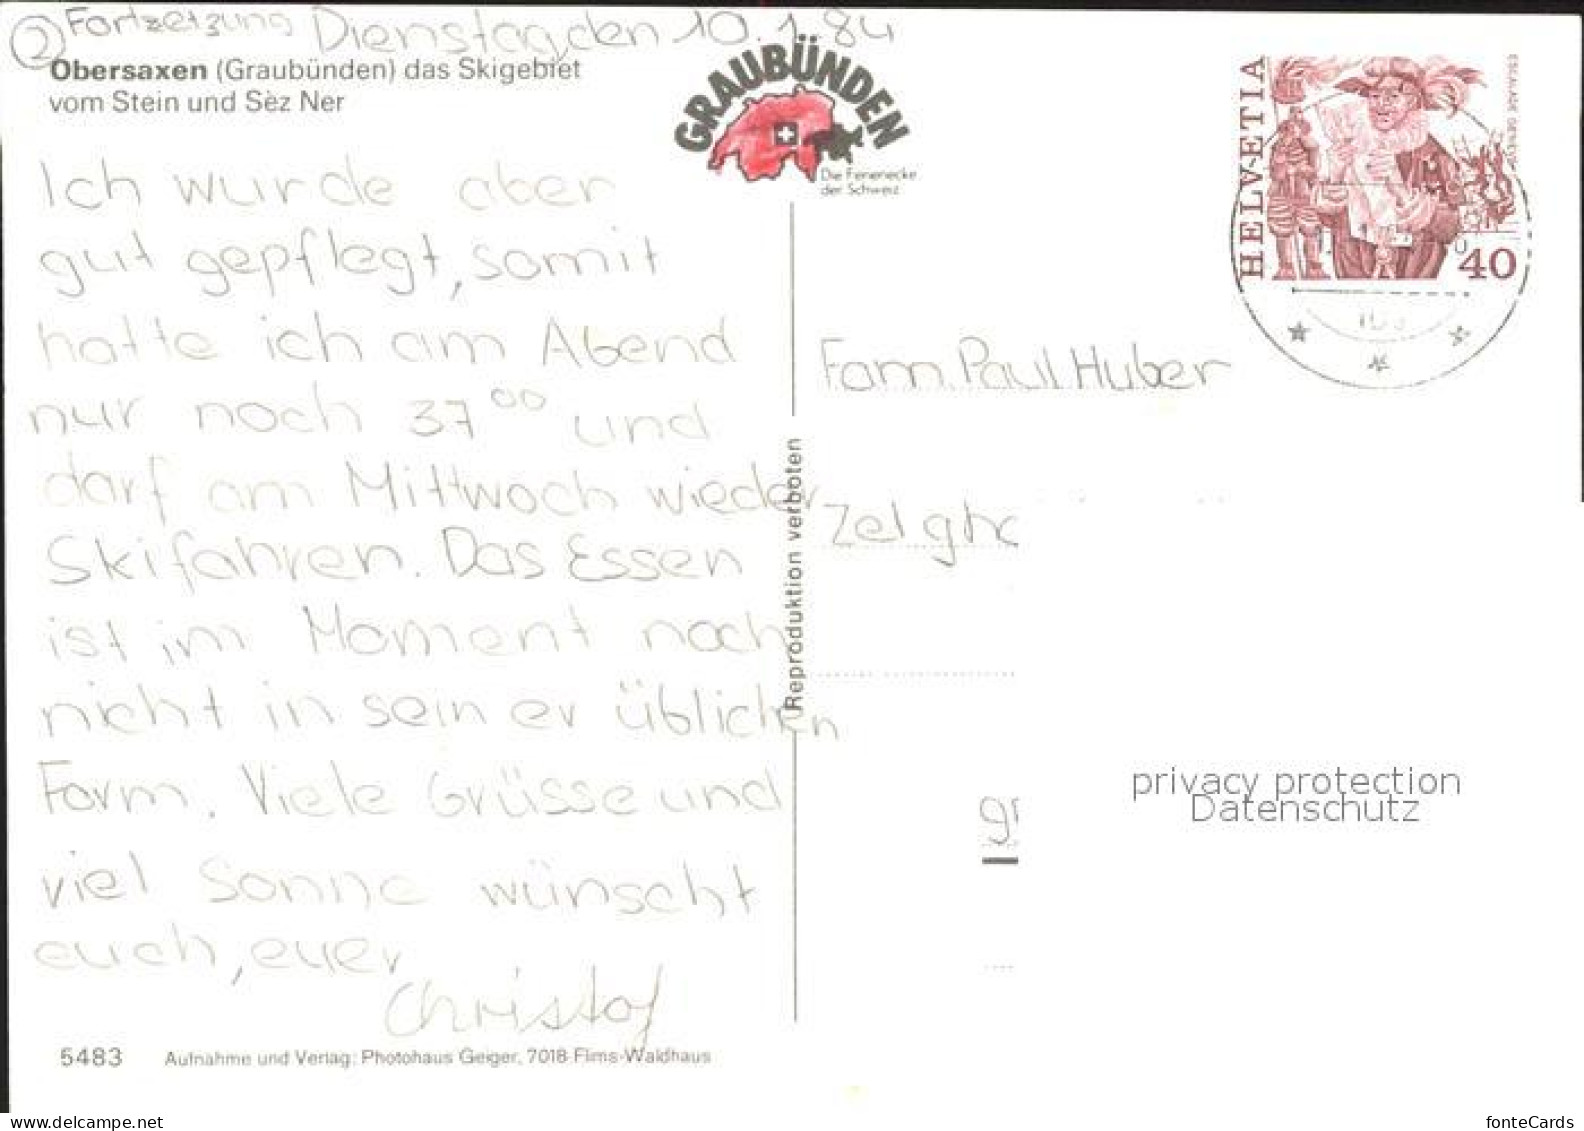 ② Fortzetzung Dienstag, den 10.1.84
Obersaxen (Graubünden) das Skigebiet
vom Stein und Sèz Ner
GRAUBÜNDEN
Die Ferienecke
der Schweiz
HELVETIA
ESCALADE GENEVE
40
Ich wurde aber
gut gepflegt, somit
hatte ich am Abend
nur noch 37⁰⁰ und
darf am Mittwoch wieder
Skifahren. Das Essen
ist im Moment noch
nicht in sein er üblichen
Form. Viele Grüsse und
viel Sonne wünscht
euch, euer
Christof
Reproduktion verboten
Fam. Paul Huber
Zelgho
privacy protection
Datenschutz
5483 Aufnahme und Verlag: Photohaus Geiger, 7018 Flims-Waldhaus
www.delcampe.net
fonteCards